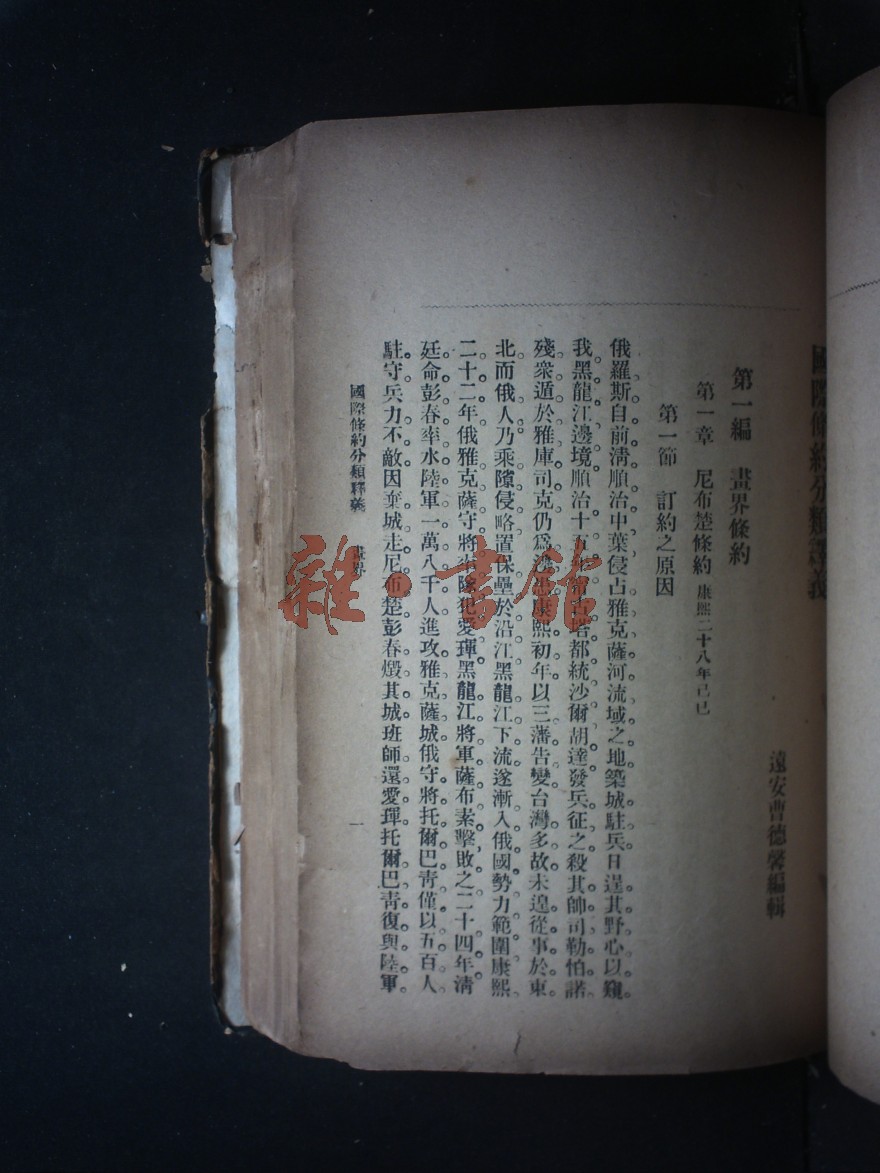 國際條約分類釋義
遠安曹德馨編輯
第一編　畫界條約
第一章　尼布楚條約 康熙二十八年己巳
第一節　訂約之原因
俄羅斯自前淸順治中葉侵占雅克薩河流域之地築城駐兵日逞其野心以窺
我黑龍江邊境順治十五年甯古塔都統沙爾胡達發兵征之殺其帥司勒怕諾
殘衆遁於雅庫司克仍爲邊患康熙初年以三藩告變台灣多故未遑從事於東
北而俄人乃乘隙侵略置保壘於沿江黑龍江下流遂漸入俄國勢力範圍康熙
二十二年俄雅克薩守將結隊犯愛琿黑龍江將軍薩布素擊敗之二十四年淸
廷命彭春率水陸軍一萬八千人進攻雅克薩城俄守將托爾巴靑僅以五百人
駐守兵力不敵因棄城走尼布楚彭春燬其城班師還愛琿托爾巴靑復與陸軍
國際條約分類釋義　畫界　一
雜·書館